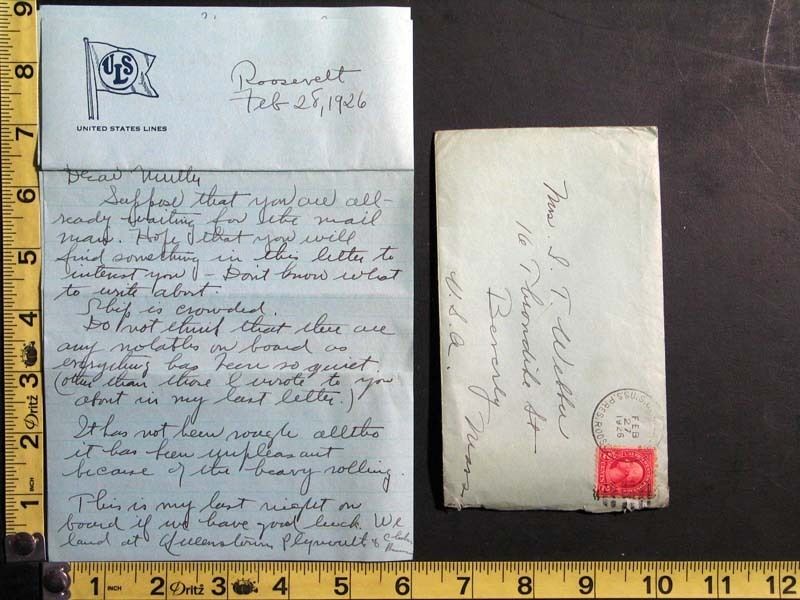 ULS
UNITED STATES LINES
Roosevelt
Feb 28, 1926
Dear
Suppose that you are all-
ready waiting for the mail
man. Hope that you will
find something in this letter to
interest you - Dont know what
to write about.
Ship is crowded.
Do not think that there are
any notables on board as
everything has been so quiet
(other than those I wrote to you
about in my last letter.)
It has not been rough alltho
it has been unpleasant
because of the heavy rolling.
This is my last night on
board if we have good luck. We
land at Queenstown Plymouth &
Mrs. D. T. Webber
16 Thorndike St
Beverly Mass
U.S.A.
FEB
27
1926
9
8
7
6
5
4
3 Dritz
2
1
1 INCH 2 Dritz 3 4 5 6 7 8 9 10 11 12